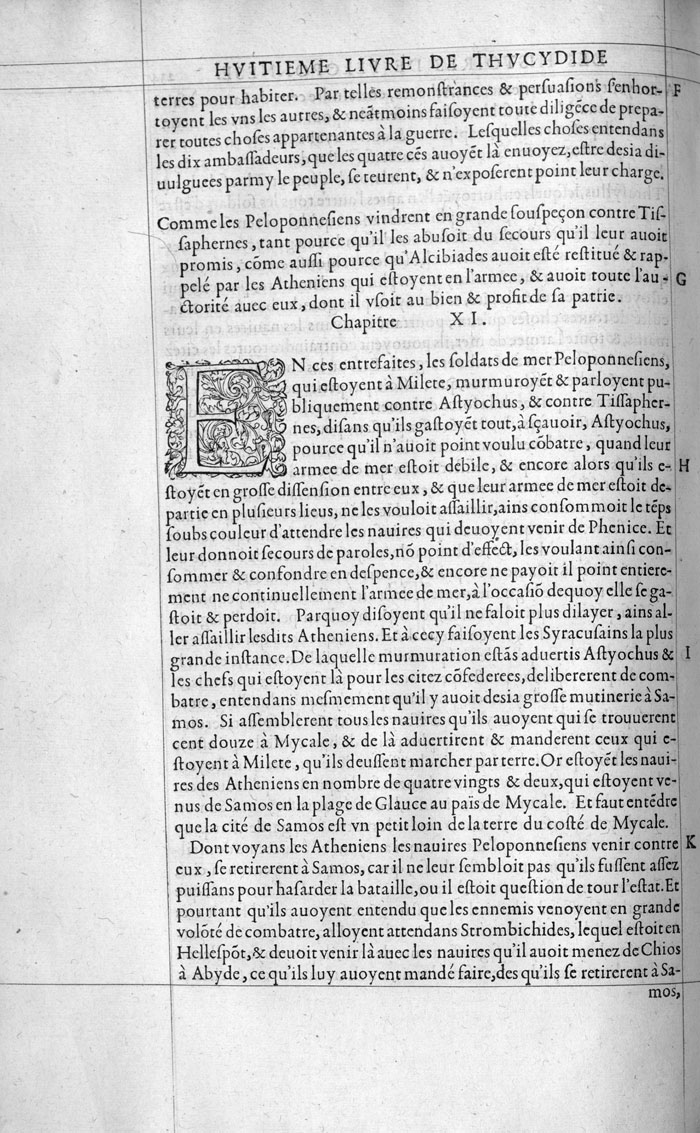 HVITIEME LIVRE DE THVCYDIDE
terres pour habiter. Par telles remonſtrances & perſuaſions ſ'enhor- F
toyent les vns les autres, & neãtmoins faiſoyent toute diligẽce de prepa-
rer toutes choſes appartenantes à la guerre. Leſquelles choſes entendans
les dix ambaſſadeurs, que les quatre cẽs auoyẽt là enuoyez, eſtre desia di-
uulguees parmy le peuple, ſe teurent, & n'expoſerent point leur charge.
Comme les Peloponneſiens vindrent en grande ſouſpeçon contre Tiſ-
ſaphernes, tant pource qu'il les abuſoit du ſecours qu'il leur auoit
promis, cõme auſſi pource qu'Alcibiades auoit eſté reſtitué & rap-
pelé par les Atheniens qui eſtoyent en l'armee, & auoit toute l'au- G
ctorité auec eux, dont il vſoit au bien & profit de ſa patrie.
Chapitre XI.
EN ces entrefaites, les ſoldats de mer Peloponneſiens,
qui eſtoyent à Milete, murmuroyẽt & parloyent pu-
bliquement contre Aſtyochus, & contre Tiſſapher-
nes, diſans qu'ils gaſtoyẽt tout, à ſçauoir, Aſtyochus,
pource qu'il n'auoit point voulu cõbatre, quand leur
armee de mer eſtoit debile, & encore alors qu'ils e- H
ſtoyẽt en groſſe diſſenſion entre eux, & que leur armee de mer eſtoit de-
partie en pluſieurs lieus, ne les vouloit aſſaillir, ains conſommoit le tẽps
ſoubs couleur d'attendre les nauires qui deuoyent venir de Phenice. Et
leur donnoit ſecours de paroles, nõ point d'effect, les voulant ainſi con-
ſommer & confondre en deſpence, & encore ne payoit il point entiere-
ment ne continuellement l'armee de mer, à l'occaſiõ dequoy elle ſe ga-
ſtoit & perdoit. Parquoy diſoyent qu'il ne faloit plus dilayer, ains al-
ler aſſaillir leſdits Atheniens. Et à cecy faiſoyent les Syracuſains la plus
grande inſtance. De laquelle murmuration eſtãs aduertis Aſtyochus & I
les chefs qui eſtoyent là pour les citez cõfederees, delibererent de com-
batre, entendans meſmement qu'il y auoit desia groſſe mutinerie à Sa-
mos. Si aſſemblerent tous les nauires qu'ils auoyent qui ſe trouuerent
cent douze à Mycale, & de là aduertirent & manderent ceux qui e-
ſtoyent à Milete, qu'ils deuſſent marcher par terre. Or eſtoyẽt les naui-
res des Atheniens en nombre de quatre vingts & deux, qui eſtoyent ve-
nus de Samos en la plage de Glauce au païs de Mycale. Et faut entẽdre
que la cité de Samos eſt vn petit loin de la terre du coſté de Mycale.
Dont voyans les Atheniens les nauires Peloponneſiens venir contre K
eux, ſe retirerent à Samos, car il ne leur ſembloit pas qu'ils fuſſent aſſez
puiſſans pour haſarder la bataille, ou il eſtoit queſtion de tour l'eſtat. Et
pourtant qu'ils auoyent entendu que les ennemis venoyent en grande
volõté de combatre, alloyent attendans Strombichides, lequel eſtoit en
Helleſpõt, & deuoit venir là auec les nauires qu'il auoit menez de Chios
à Abyde, ce qu'ils luy auoyent mandé faire, des qu'ils ſe retirerent à Sa-
mos,